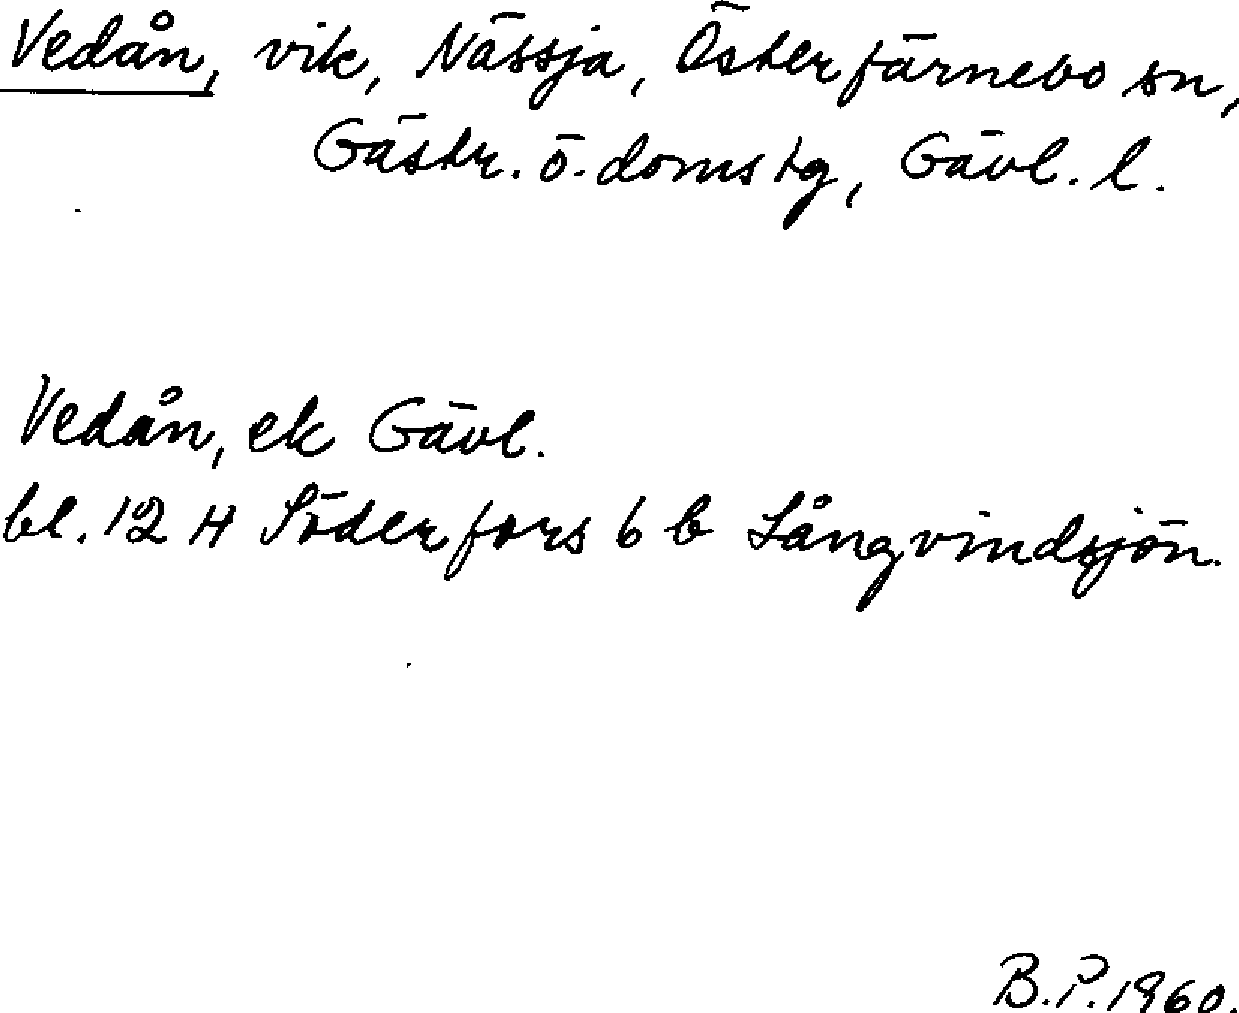 Vedån, vik, Nässja, Österfärnebo sn,
Gästr. ö. domstg, Gävl. l.
Vedån, ek Gävl.
bl. 12 H Söderfors 6 b Långvindsjön.
B.P. 1960.